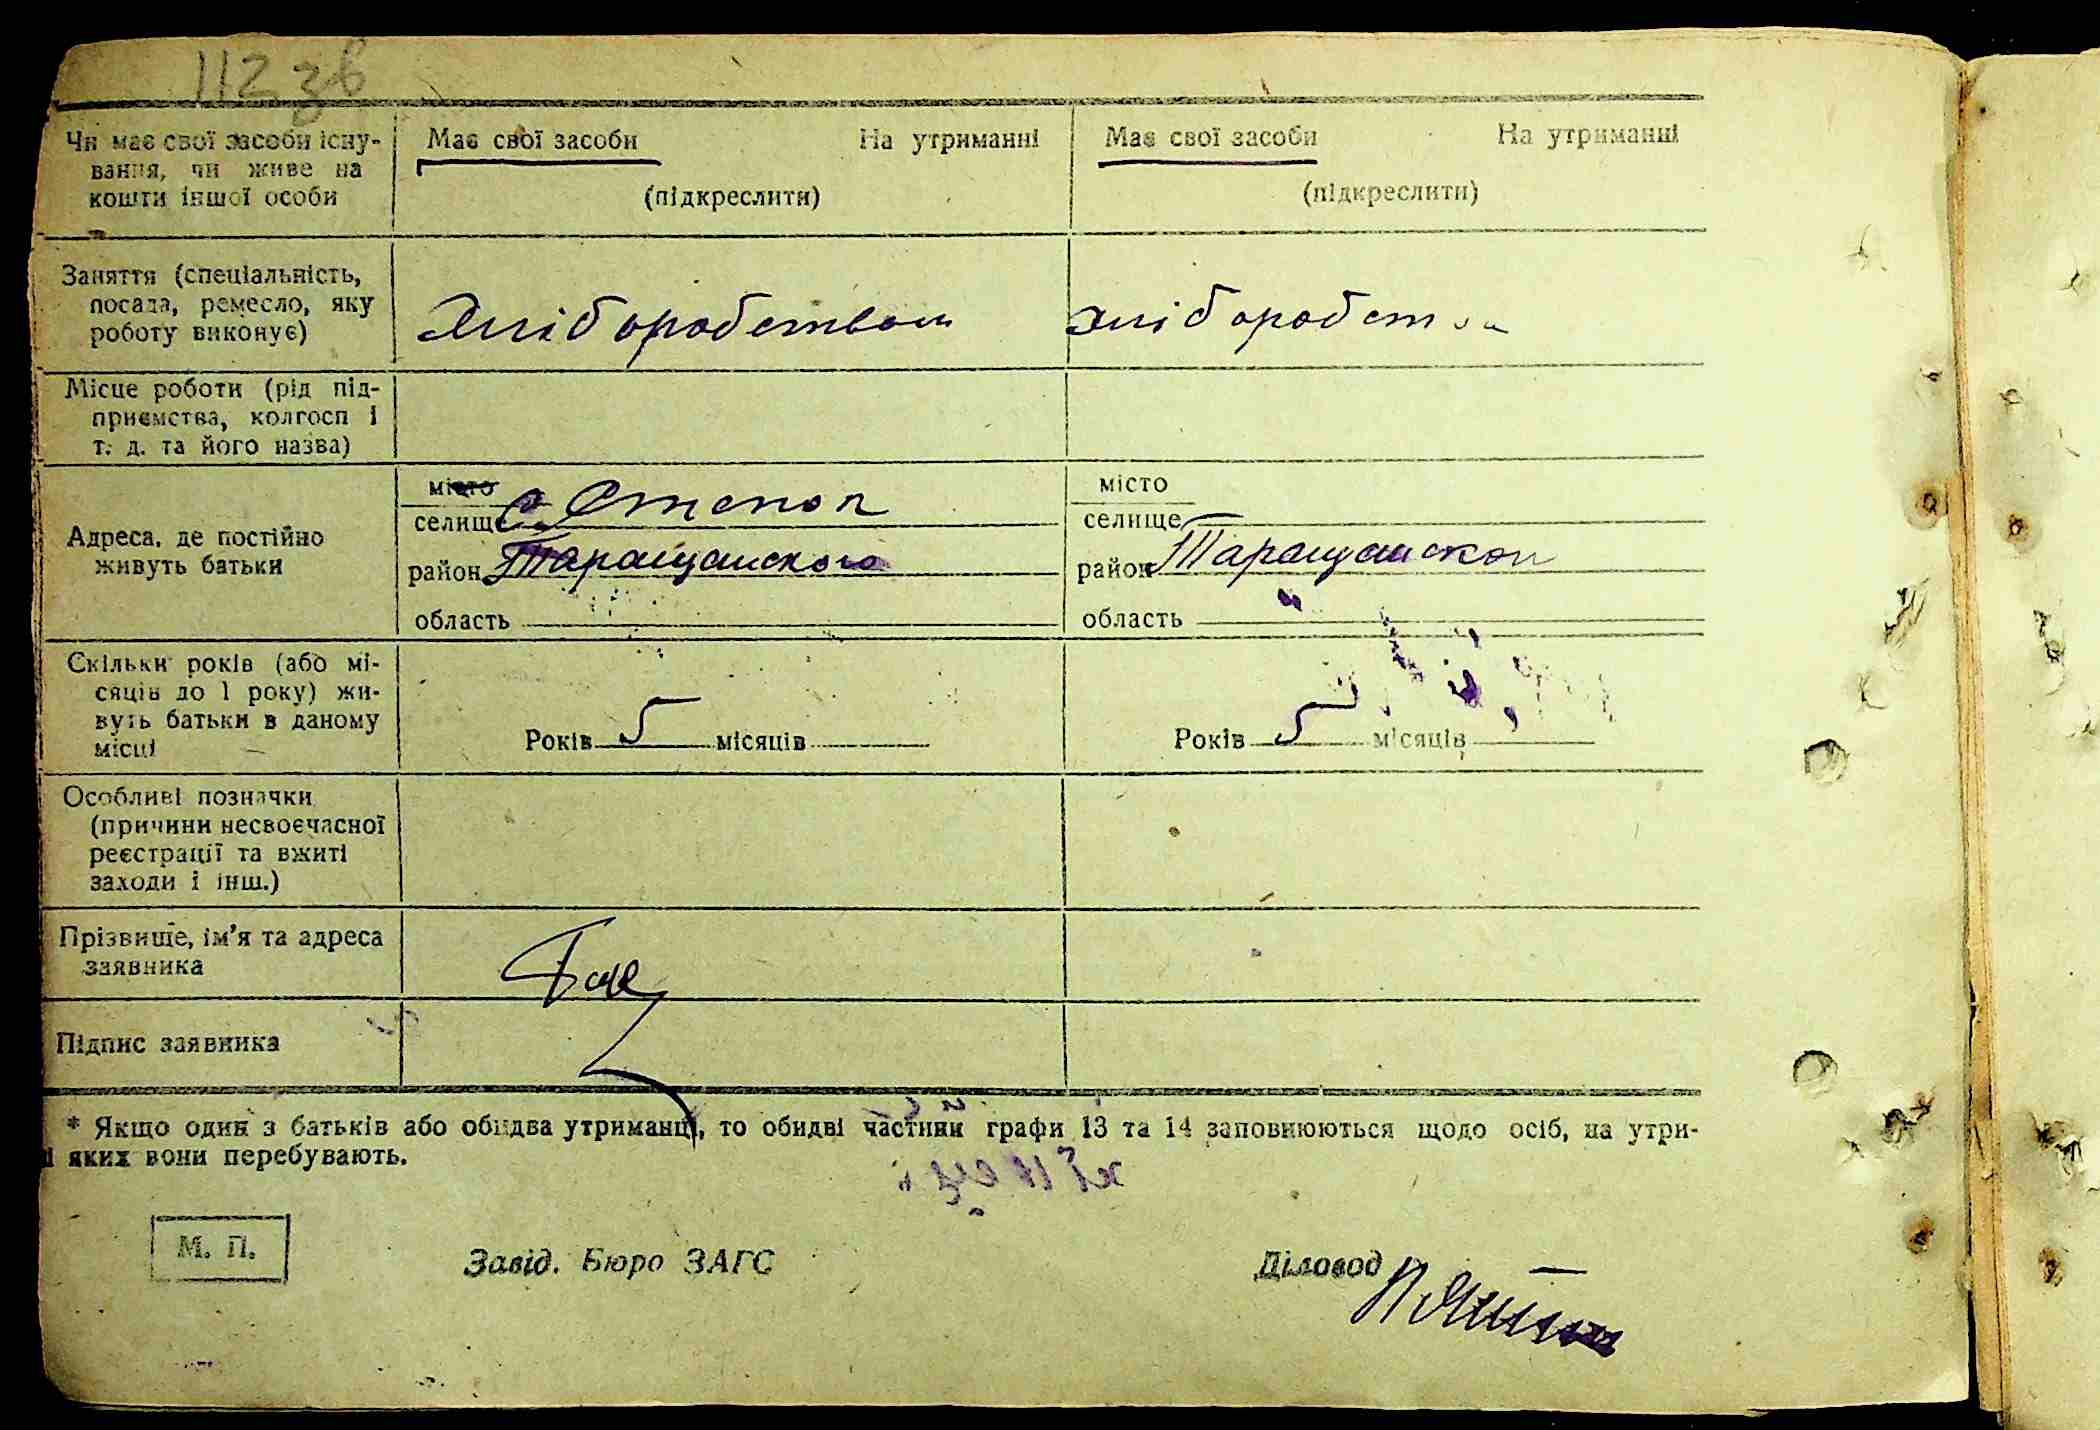 112 зв
Чи має свої засоби існу-
вання, чи живе на
кошти іншої особи
Має свої засоби На утриманні
(підкреслити)
Має свої засоби На утриманні
(підкреслити)
Заняття (спеціальність,
посада, ремесло, яку
роботу виконує)
Хліборобством
хлібороб
Місце роботи (рід під-
приємства, колгосп і
т. д. та його назва)
Адреса, де постійно
живуть батьки
місто
селище с. Степок
район Таращанского
область
місто
селище
район Таращанскои
область "
Скільки років (або мі-
сяців до 1 року) жи-
вуть батьки в даному
місці
Років 5 місяців
Років 5 місяців
Особливі позначки
(причини несвоєчасної
реєстрації та вжиті
заходи і інш.)
Прізвище, ім'я та адреса
заявника
Підпис заявника
* Якщо один з батьків або обидва утриманці, то обидві частини графи 13 та 14 заповнюються щодо осіб, на утри-
і яких вони перебувають.
М. П.
Завід. Бюро ЗАГС
Діловод